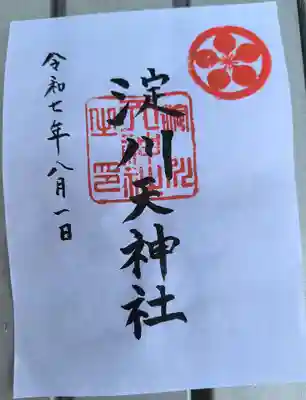 淀川天神社
令和七年八月一日